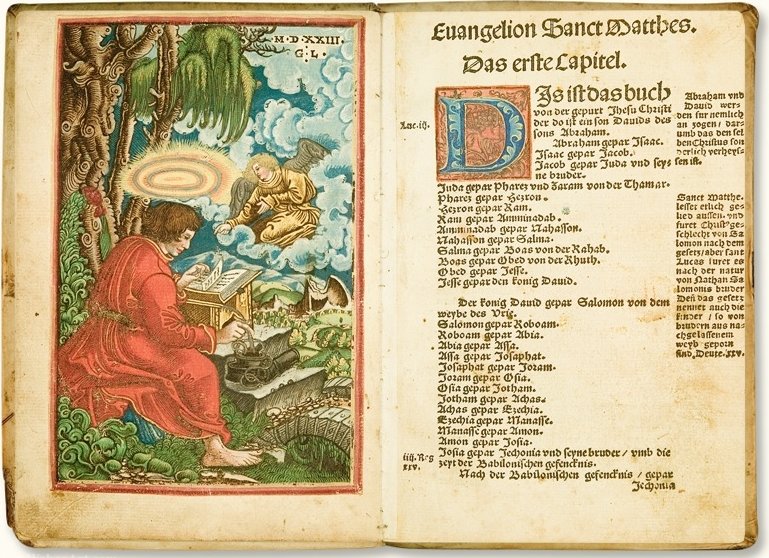 M·D·XXIII·
G·L·
Euangelion Sanct Matthes.
Das erste Capitel.
DIs ist das buch
von der gepurt Jhesu Christi
der do ist ein son Dauids des
sons Abraham.
Abraham gepar Isaac.
Isaac gepar Jacob.
Jacob gepar Juda vnd seys
ne bruder.
Juda gepar Pharez vnd Zaram von der Thamar.
Pharez gepar Hezron.
Hezron gepar Ram.
Ram gepar Amminadab.
Amminadab gepar Nahasson.
Nahasson gepar Salma.
Salma gepar Boas von der Rahab.
Boas gepar Obed von der Rhuth.
Obed gepar Jesse.
Jesse gepar den konig Dauid.
Der konig Dauid gepar Salomon von dem
weybe des Vrie.
Salomon gepar Roboam.
Roboam gepar Abia.
Abia gepar Assa.
Assa gepar Josaphat.
Josaphat gepar Joram.
Joram gepar Osia.
Osia gepar Jotham.
Jotham gepar Achas.
Achas gepar Ezechia.
Ezechia gepar Manasse.
Manasse gepar Amon.
Amon gepar Josia.
Josia gepar Jechonia vnd seyne bruder / vmb die
zeyt der Babilonischen gefencknis.
Nach der Babilonischen gefencknis / gepar
Jechonia
Luc.iij.
iiij.Reg
xxv.
Abraham vnd
Dauid wer-
den fur nemlich
an zogen / dar-
umb das den sel
ben Christus son
derlich verheys-
sen ist.
Sanct Matthe.
lesset etlich ge-
lied aussen / vnd
furet Christ' ges
schlecht von Sa
lomon nach dem
gesetz / aber sant
Lucas furet es
nach der natur
von Nathan Sa
lomonis bruder
Den das gesetz
nennet auch die
kinder / so von
brudern aus na-
chgelassenem
weyb geporn
sind, Deute.xxv.